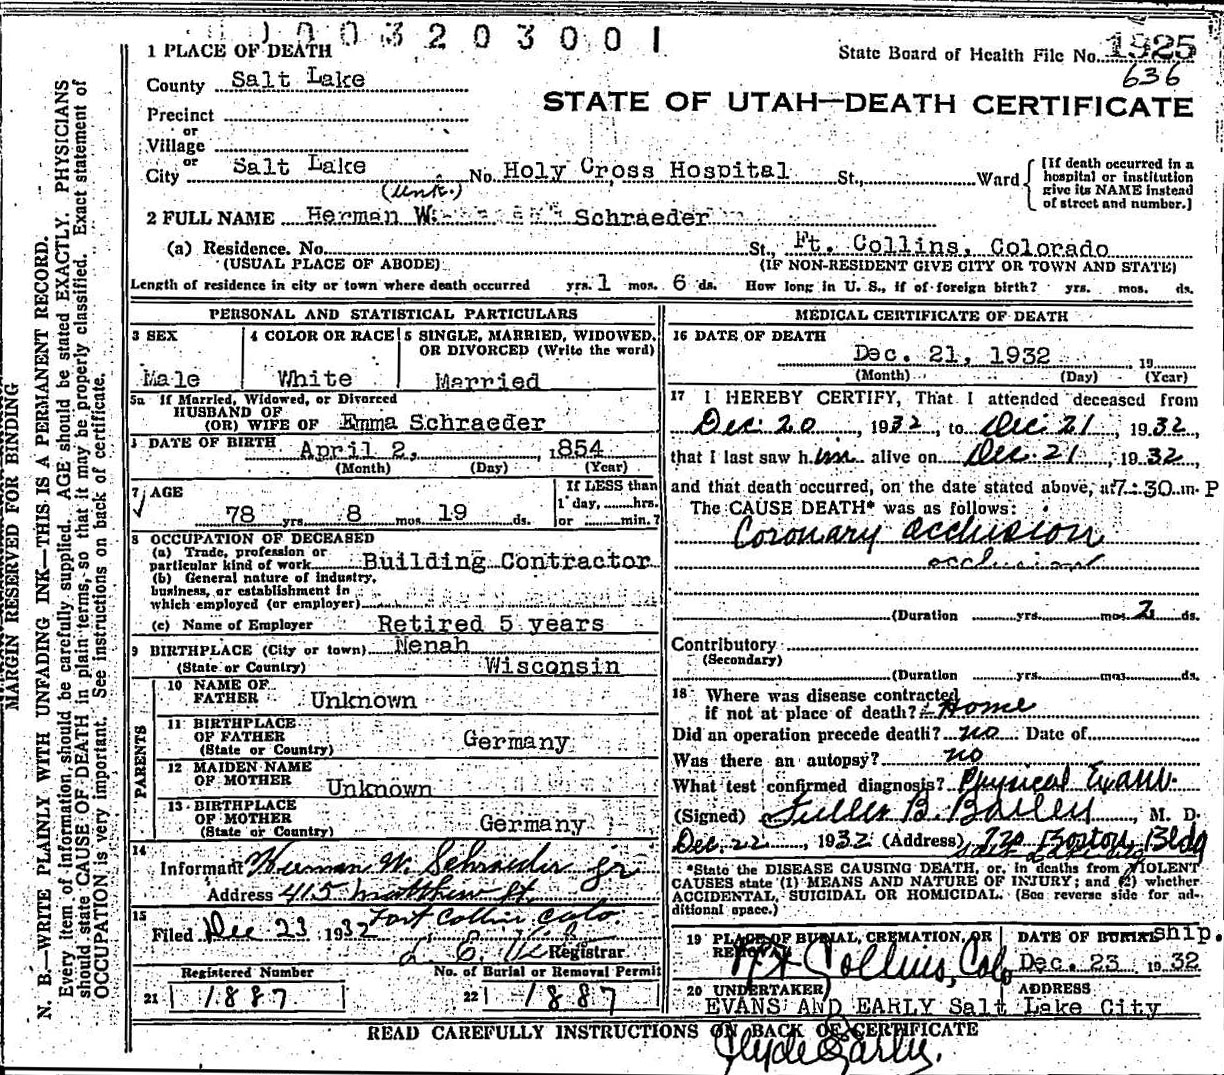 1003203001
1 PLACE OF DEATH
State Board of Health File No. 1925
636
County Salt Lake
STATE OF UTAH—DEATH CERTIFICATE
Precinct
or
Village
or
City Salt Lake No. Holy Cross Hospital St., Ward
[If death occurred in a
hospital or institution
give its NAME instead
of street and number.]
(Unk.)
2 FULL NAME Herman W. Schraeder
(a) Residence. No. St., Ft. Collins, Colorado
(USUAL PLACE OF ABODE) (IF NON-RESIDENT GIVE CITY OR TOWN AND STATE)
Length of residence in city or town where death occurred yrs. 1 mos. 6 ds. How long in U. S., if of foreign birth? yrs. mos. ds.
PERSONAL AND STATISTICAL PARTICULARS
3 SEX
Male
4 COLOR OR RACE
White
5 SINGLE, MARRIED, WIDOWED,
OR DIVORCED (Write the word)
Married
5a If Married, Widowed, or Divorced
HUSBAND OF
(OR) WIFE OF Emma Schraeder
DATE OF BIRTH April 2, 1854
(Month) (Day) (Year)
7 AGE
78 yrs. 8 mos. 19 ds.
If LESS than
1 day, hrs.
or min.?
8 OCCUPATION OF DECEASED
(a) Trade, profession or
particular kind of work Building Contractor
(b) General nature of industry,
business, or establishment in
which employed (or employer)
(c) Name of Employer Retired 5 years
9 BIRTHPLACE (City or town) Nenah
(State or Country) Wisconsin
PARENTS
10 NAME OF
FATHER Unknown
11 BIRTHPLACE
OF FATHER
(State or Country) Germany
12 MAIDEN NAME
OF MOTHER Unknown
13 BIRTHPLACE
OF MOTHER
(State or Country) Germany
14
Informant Herman W. Schraeder jr
Address 415 Matthew st.
Fort Collins Colo.
15
Filed Dec 23 1932
Registrar
Registered Number
21 1887
No. of Burial or Removal Permit
22 1887
MEDICAL CERTIFICATE OF DEATH
16 DATE OF DEATH
Dec. 21, 1932 19
(Month) (Day) (Year)
17 I HEREBY CERTIFY, That I attended deceased from
Dec. 20, 1932, to Dec. 21, 1932,
that I last saw him alive on Dec. 21, 1932,
and that death occurred, on the date stated above, at 7:30 m. P
The CAUSE DEATH* was as follows:
Coronary occlusion
occlusion
(Duration yrs. mos. 2 ds.
Contributory
(Secondary)
(Duration yrs. mos. ds.
18 Where was disease contracted
if not at place of death? Home
Did an operation precede death? no Date of
Was there an autopsy? no
What test confirmed diagnosis? Physical Exam.
(Signed) Fuller B. Bailey, M. D.
Dec. 22, 1932 (Address) 720 Boston Bldg
*State the DISEASE CAUSING DEATH, or, in deaths from VIOLENT
CAUSES state (1) MEANS AND NATURE OF INJURY; and (2) whether
ACCIDENTAL, SUICIDAL OR HOMICIDAL. (See reverse side for ad-
ditional space.)
19 PLACE OF BURIAL, CREMATION, OR
REMOVAL
Ft Collins, Colo
DATE OF BURIAL ship.
Dec. 23 1932
20 UNDERTAKER ADDRESS
EVANS AND EARLY Salt Lake City
READ CAREFULLY INSTRUCTIONS ON BACK OF CERTIFICATE
Clyde Early.
MARGIN RESERVED FOR BINDING
N. B.—WRITE PLAINLY WITH UNFADING INK—THIS IS A PERMANENT RECORD.
Every item of information should be carefully supplied. AGE should be stated EXACTLY. PHYSICIANS
should state CAUSE OF DEATH in plain terms, so that it may be properly classified. Exact statement of
OCCUPATION is very important. See instructions on back of certificate.